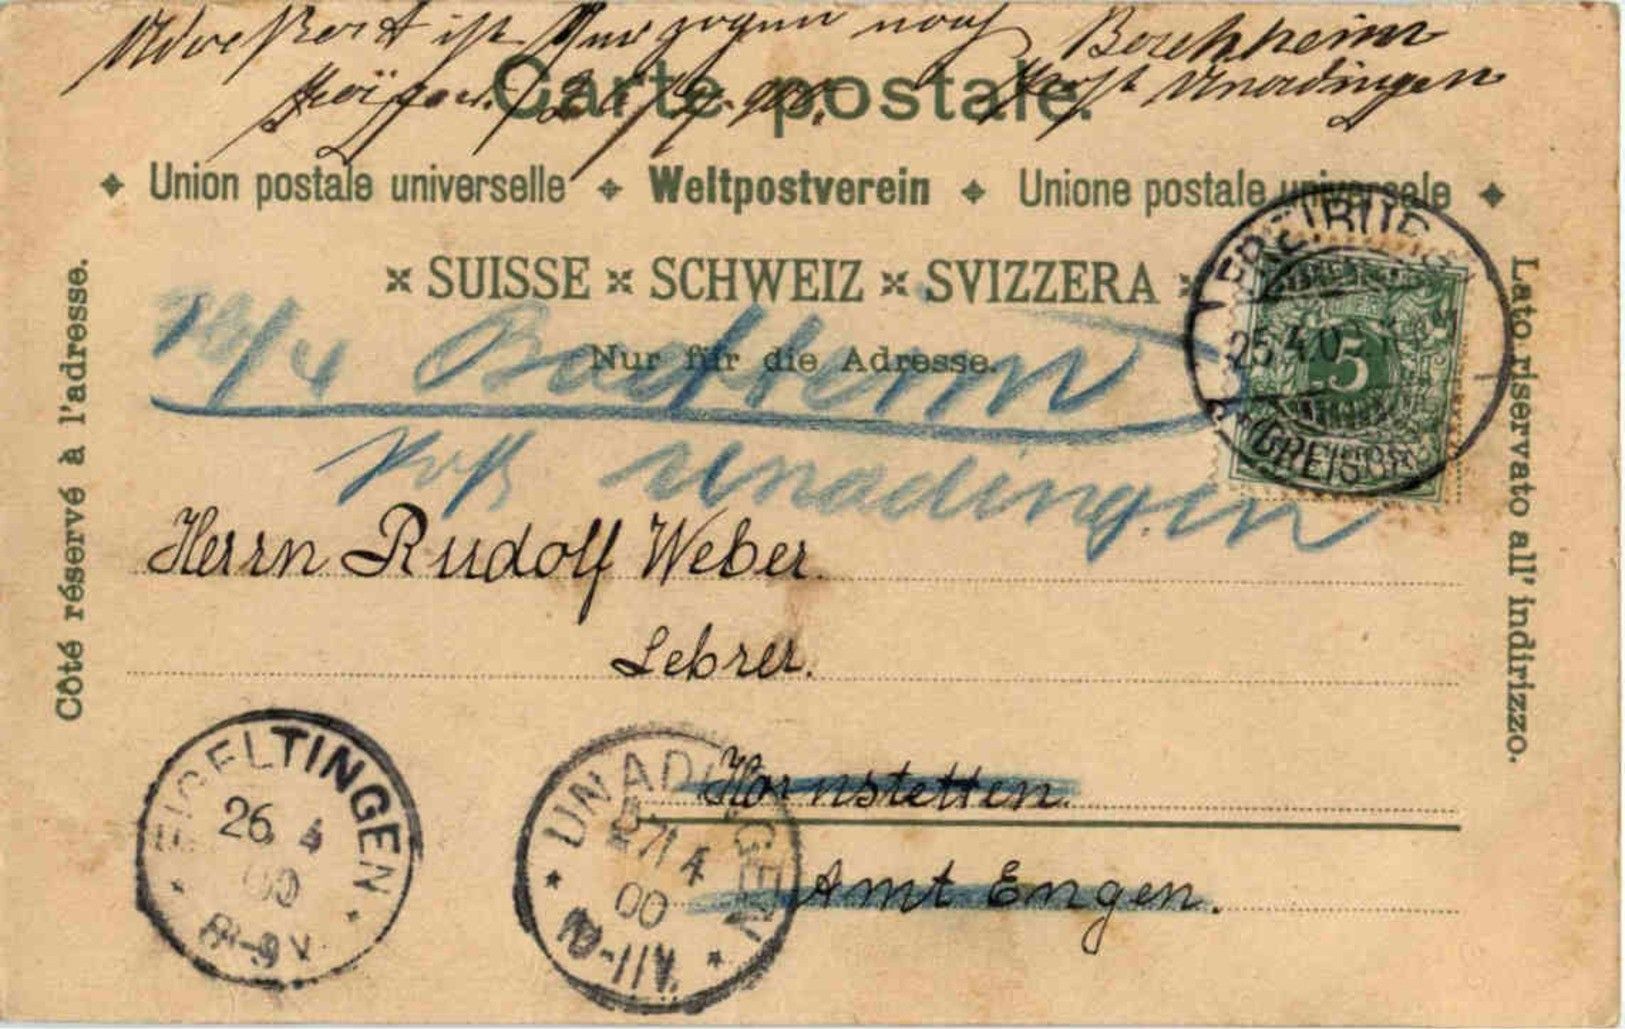 Adressat ist Umgezogen nach Bachheim
Post Unadingen
Carte postale.
Union postale universelle Weltpostverein Unione postale universale
SUISSE SCHWEIZ SVIZZERA
Nur für die Adresse.
Côté réservé à l'adresse.
Lato riservato all' indirizzo.
5
25.4.0
(BREISGAU)
26/4 Bachheim
Post Unadingen
Herrn Rudolf Weber.
Lehrer.
Honstetten.
Amt Engen.
EIGELTINGEN
26 4
00
8-9 V
UNADINGEN
27 4
00
10-11 V